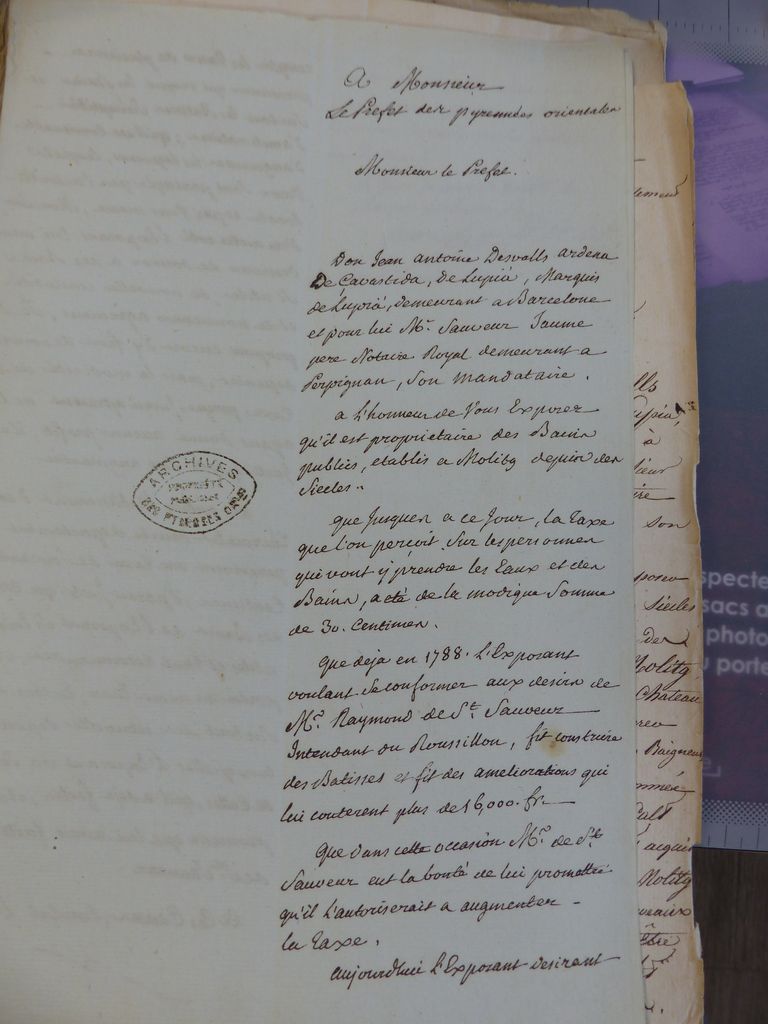 A Monsieur
Le Prefet des pyrennées orientales
Monsieur le Prefet.
Don Jean antoine Desvalls ardena
De Cavastida, de Lupià, Marquis
de Lupià, demeurant a Barcelone
et pour lui Mr. Sauveur Jaume
pere Notaire Royal demeurant a
Perpignan, son mandataire.
a l'honneur de Vous Exposer
qu'il est proprietaire des Bains
publics, etablis a Molitg depuis des
Siecles.
que Jusques a ce Jour, la Taxe
que l'on perçoit sur les personnes
qui vont y prendre les Eaux et des
Bains, a eté de la modique somme
de 30. Centimes.
que deja en 1788. L'Exposant
voulant se conformer aux desirs de
Mr. Raymond de St. Sauveur
Intendant du Roussillon, fit construire
des Batisses et fit des ameliorations qui
lui couterent plus de 16,000. fr.
Que dans cette occasion Mr. de St.
Sauveur eut la bonté de lui promettre
qu'il l'autoriserait a augmenter
la Taxe.
aujourdhui L'Exposant desirant
ARCHIVES
PROPRIÉTÉ
PUBLIQUE
DES PYRENEES ORles
à
son
Siecles
de
Molitg
Chateau
Baigneurs
acquis
Molitg
specte
sacs a
photo
u porte